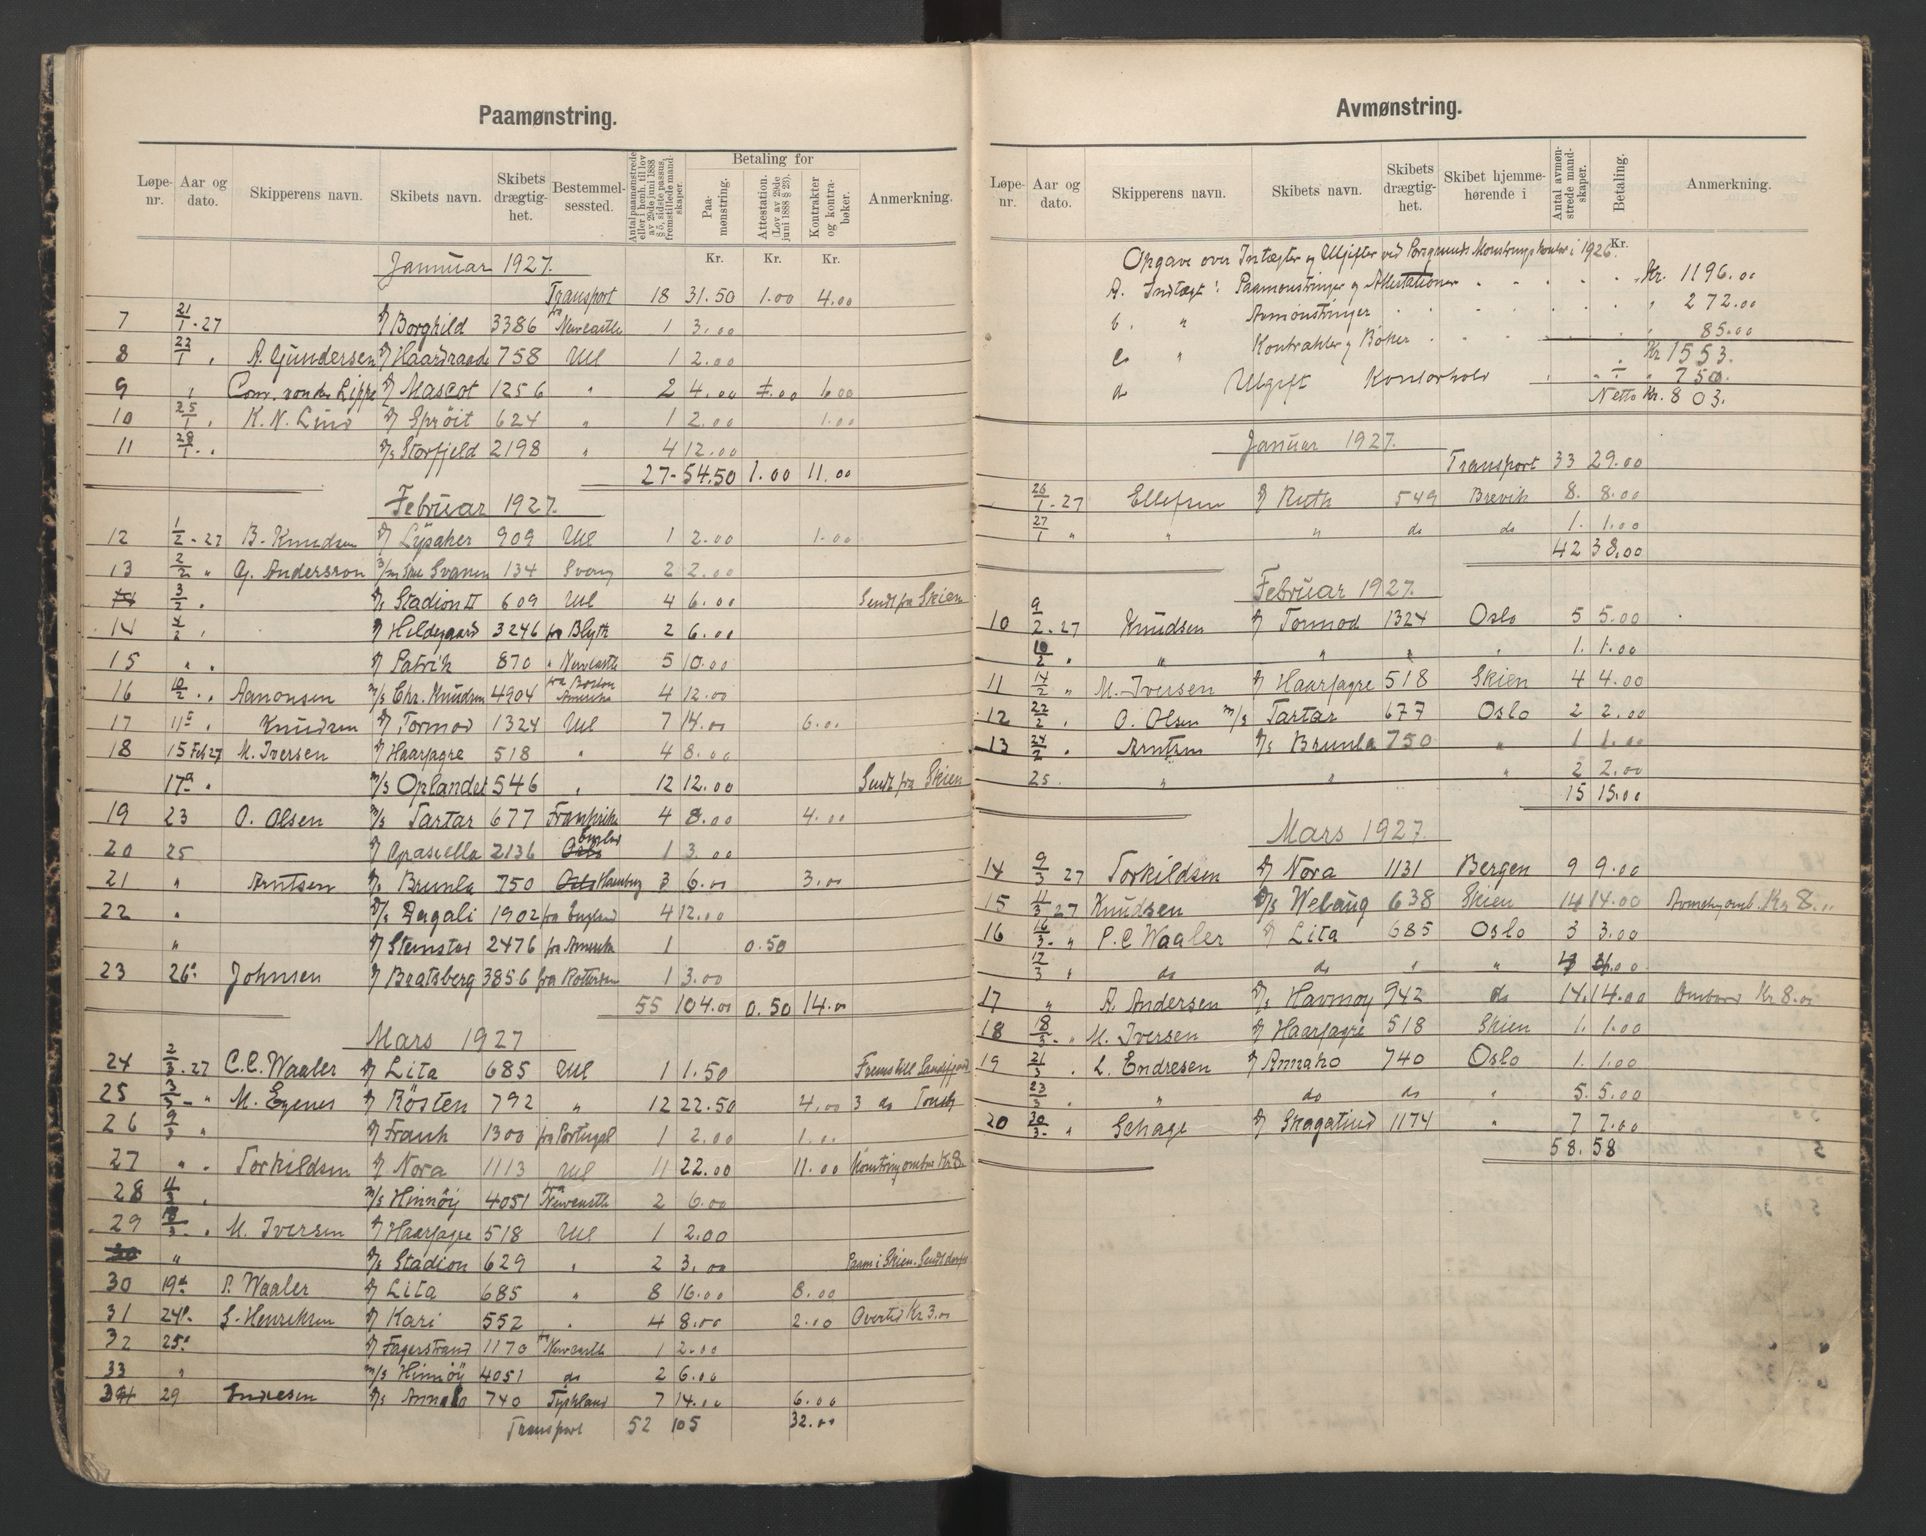 Paamønstring.
Løpe-nr. Aar og dato. Skipperens navn. Skibets navn. Skibets drægtig-het. Bestemmel-sessted. Antal paamønstrede eller i henh. til lov av 29de juni 1888 § 5, sidste passus, fremstillede mand-skaper. Betaling for Paa-mønstring. Attestation. (Lov av 29de juni 1888 § 23). Kontrakter og kontra-bøker. Anmerkning.
Januar 1927. Kr. Kr. Kr.
Transport 18 31.50 1.00 4.00
7 21/1 - 27 Borghild 3386 fra Newcastle 1 3.00
8 22/1 " A. Gundersen Haardraade 758 Utl 1 2.00
9 " Con. von der Lippe Mascot 1256 " 2 4.00 6.00
10 25/1 " K. N. Lind Sprøit 624 " 1 2.00 1.00
11 28/1 " Storfjeld 2198 " 4 12.00
27 - 54.50 1.00 11.00
Februar 1927.
12 1/2 - 27 B. Knudsen Lysaker 909 Utl 1 2.00 1.00
13 2/2 " G. Andersson Svanen 134 Sverig 2 2.00
3/2 " Stadion II 609 Utl 4 6.00 Sendt fra Skien
14 4/2 " Hildegaard 3246 fra Blyth 2 6.00
15 " " Patrik 870 " Newcastle 5 10.00
16 10/2 " Aanonsen m/s Chr. Knudsen 4904 fra Boston Amerika 4 12.00
17 11 " Knudsen Tormod 1324 Utl 7 14.00 6.00
18 15 Feb 27 M. Iversen Haarfagre 518 " 4 8.00
17 " m/s Oplandet 546 " 12 12.00 Sendt fra Skien
19 23 O. Olsen m/s Tartar 677 Frankrike 4 8.00 4.00
20 25 Graziella 2136 Oslo England 1 3.00
21 " Arntsen Brunla 750 Oslo Hamburg 3 6.00 3.00
22 " Dagali 1902 fra England 4 12.00
" Stemstad 2476 fra Amerika 1 0.50
23 26 Johnsen Bratsberg 3856 fra Rotterdam 1 3.00
55 104.00 0.50 14.00
Mars 1927
24 2/3 - 27 C. C. Waaler Lita 685 Utl 1 1.50
25 3/3 - " M. Egenes Røsten 792 " 12 22.50 4.00 3 do
26 9/3 " Frank 1300 fra Portugal 1 2.00 1.00
27 " " Torkildsen Nora 1113 Utl 11 22.00 11.00 Kr 8.
28 11/3 " m/s Hinnøy 4051 fra Newcastle 2 6.00
29 18/3 " M. Iversen Haarfagre 518 Utl 1 2.00
30 " Stadion 629 " 2 3.00 Paam i Skien. Sendt
30 19 P. Waaler Lita 685 " 8 16.00 8.00
31 24 S. Henriksen Kari 552 " 4 8.00 2.00 Overtid Kr 3.00
32 25 Fagerstrand 1170 fra Newcastle 1 2.00
33 " m/s Hinnøy 4051 do 2 6.00
34 29 Endresen Annaho 740 Tyskland 7 14.00 6.00
Transport 52 105 32.00
Avmønstring.
Løpe-nr. Aar og dato. Skipperens navn. Skibets navn. Skibets drægtig-het. Skibet hjemme-hørende i Antal avmøn-strede mand-skaper. Betaling. Anmerkning.
Kr.
Opgave over Indtægter og Utgifter ved Porsgrunds Mønstringskontor i 1926.
A. Indtægt: Paamønstringer og Attestationer Kr. 1196.00
b. " Avmønstringer " 272.00
c. " Kontrakter og Bøker " 85.00
Kr 1553.
d Utgift Kontorhold ÷ " 750.
Netto Kr. 803.
Januar 1927.
Transport 33 29.00
26/1 - 27 Ellefsen Ruth 549 Brevik 8. 8.00
27/1 " " " do do 1. 1.00
42 38.00
Februar 1927.
10 9/2 - 27 Knudsen Tormod 1324 Oslo 5 5.00
10/2 " " " " " 1. 1.00
11 14/2 " M. Iversen Haarfagre 518 Skien 4 4.00
12 22/2 " O. Olsen m/s Tartar 677 Oslo 2 2.00
13 24/2 " Arntsen Brunla 750 " 1 1.00
25 " " " 2 2.00
15 15.00
Mars 1927.
14 9/3 27 Torkildsen Nora 1131 Bergen 9 9.00
15 11/3 - 27 Knudsen Welaug 638 Skien 14 14.00 Kr 8.
16 16/3 - " P. C Waaler Lita 685 Oslo 3 3.00
17/3 " do do " " 4 4.00
17 " A. Andersen Havmøy 942 do 14. 14.00 Ombord Kr 8.00
18 18/3 - " M. Iversen Haarfagre 518 Skien 1. 1.00
19 21/3 " L. Endresen Annaho 740 Oslo 1. 1.00
23/3 " " do do " 5. 5.00
20 30/3 - " Schage Skagatind 1174 " 7 7.00
58. 58